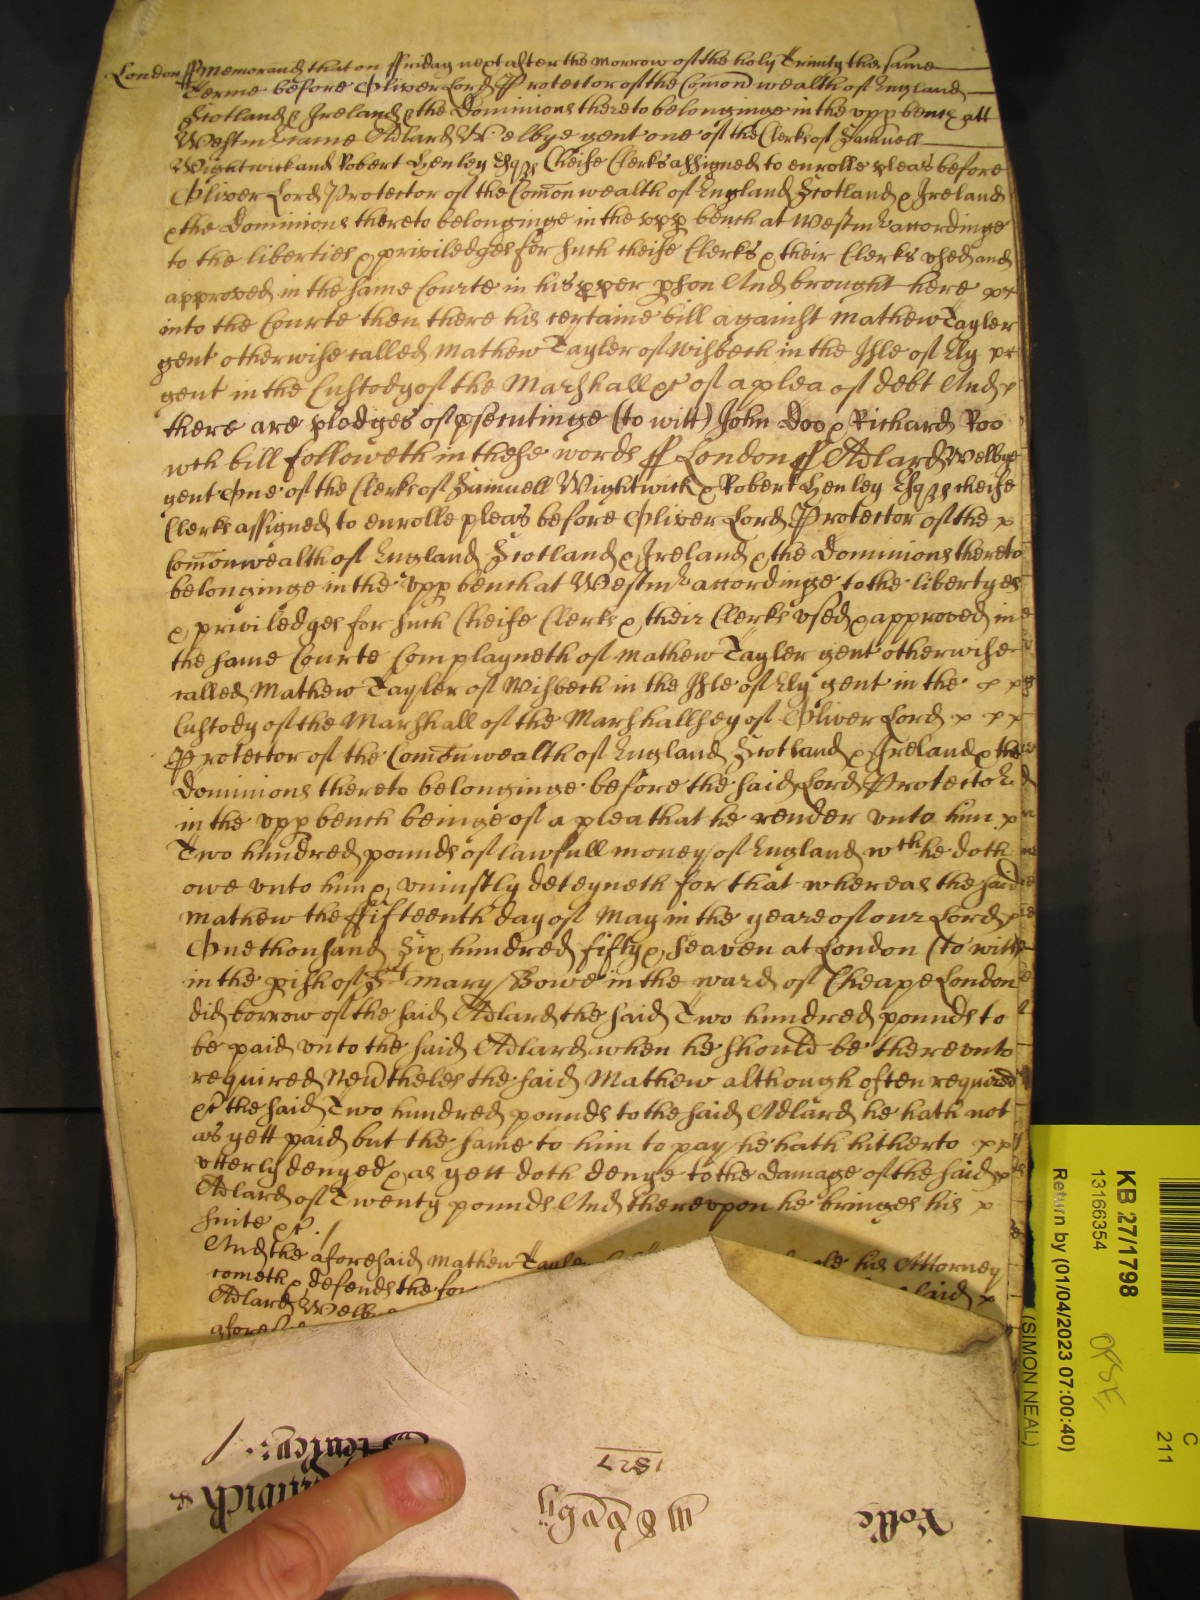 London ss Memorand that on ffriday next after the morrow of the holy Trinity this same
Terme before Oliver Lord Protector of the Comon wealth of England
Scotland & Ireland & the Dominions thereto belonginge in the upp bench att
Westmr came Adlard Welbye gent one of the Clerks of Samuell
Wightwick and Robert Henley Esqrs Cheife Clerks assigned to enrolle pleas before
Oliver Lord Protector of the Comon wealth of England Scotland & Ireland
& the Dominions thereto belonginge in the upp bench at Westmr accordinge
to the liberties & priviledges for such cheife Clerks & their Clerks used and
approved in the same Courte in his pper pson And brought here
into the Courte then there his certaine bill against Mathew Tayler
gent otherwise called Mathew Tayler of Wisbech in the Isle of Ely
gent in the Custody of the Marshall &c of a plea of debt And
there are pledges of psecutinge (to witt) John Doo & Richard Roo
wch bill followeth in these words ss London ss Adlard Welbye
gent One of the Clerks of Samuell Wightwick & Robert Henley Esqrs cheife
Clerks assigned to enrolle pleas before Oliver Lord Protector of the
Comonwealth of England Scotland & Ireland & the Dominions thereto
belonginge in the upp bench at Westmr accordinge to the libertyes
& priviledges for such Cheife Clerks & their Clerks used & approved in
the same Courte Complayneth of Mathew Tayler gent otherwise
called Mathew Tayler of Wisbech in the Isle of Ely gent in the
Custody of the Marshall of the Marshallsey of Oliver Lord
Protector of the Comonwealth of England Scotland & Ireland & the
Dominions thereto belonginge before the said Lord Protector
in the upp bench beinge of a plea that he render unto him
Two hundred pounds of lawfull money of England wch he doth
owe unto him & uniustly deteyneth for that whereas the said
Mathew the ffifteenth day of May in the yeare of our Lord
One thousand Six hundred fifty & seaven at London (to witt)
in the pish of St Mary Bowe in the ward of Cheape London
did borrow of the said Adlard the said Two hundred pounds to
be paid unto the said Adlard when he should be thereunto
required Nevtheles the said Mathew although often required
&c the said Two hundred pounds to the said Adlard he hath not
as yett paid but the same to him to pay he hath hitherto
utterly denyed & as yett doth denye to the damage of the said
Adlard of Twenty pounds And thereupon he bringes his
suite &c
And the aforesaid Mathew Tayler his Attorney
cometh & defends the said
Adlard
KB 27/1798
13166354
Return by (01/04/2023 07:00:40)
(SIMON NEAL)
C
211
1827
Henley